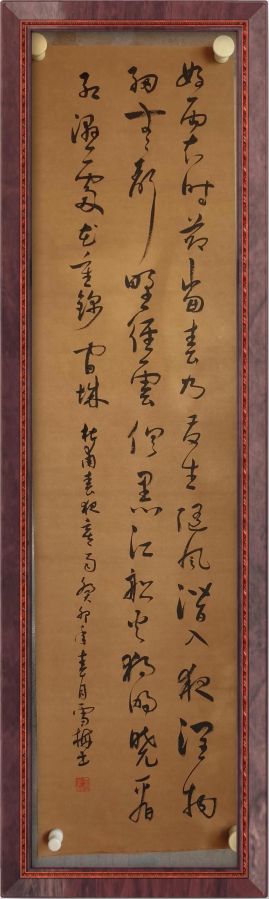 好雨知时节当春乃发生随风潜入夜润物
细无声野径云俱黑江船火独明晓看
红湿处花重锦官城杜甫春夜喜雨癸卯年春月雪梅书